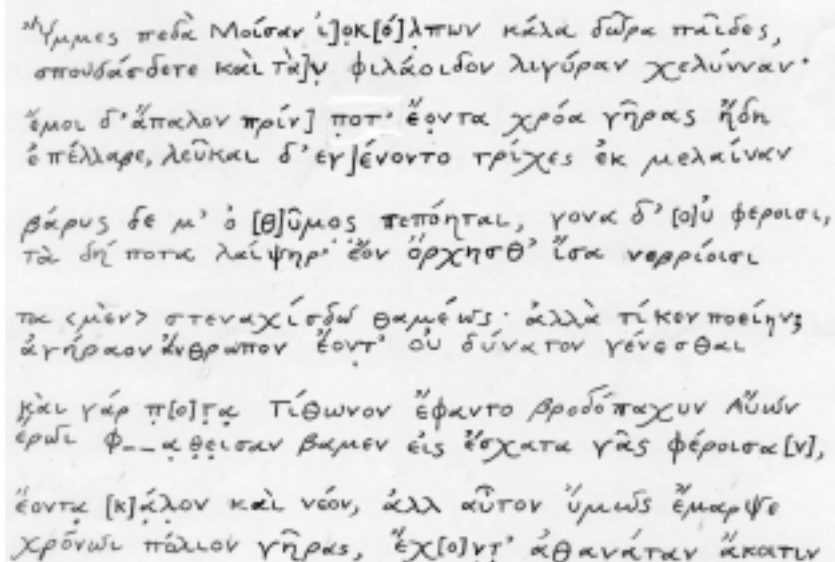 Υ̓́μμες πεδὰ Μοίσαν ἰ]οκ[ό]λπων κάλα δῶρα παῖδες,
σπουδάσδετε καὶ τὰ]ν φιλάοιδον λιγύραν χελύνναν·
ἔμοι δ' ἄπαλον πρίν] ποτ' ἔοντα χρόα γῆρας ἤδη
ἐπέλλαβε, λεῦκαι δ' ἐγ]ένοντο τρίχες ἐκ μελαίναν
βάρυς δε μ' ὀ [θ]ῦμος πεπόηται, γονα δ' [ο]ὐ φέροισι,
τὰ δή ποτα λαίψηρ' ἔον ὄρχησθ' ἴσα νεβρίοισι
τα <μὲν> στεναχίσδω θαμέως· ἀλλὰ τί κεν ποείην;
ἀγήραον ἄνθρωπον ἔοντ' οὐ δύνατον γένεσθαι
καὶ γάρ π[ο]τα Τίθωνον ἔφαντο βροδόπαχυν Αὔων
ἔρωι φ__αθεισαν βαμεν εἰς ἔσχατα γᾶς φέροισα[ν],
ἔοντα [κ]άλον καὶ νέον, ἀλλ αὖτον ὔμως ἔμαρψε
χρόνωι πόλιον γῆρας, ἔχ[ο]ντ' ἀθανάταν ἄκοιτιν